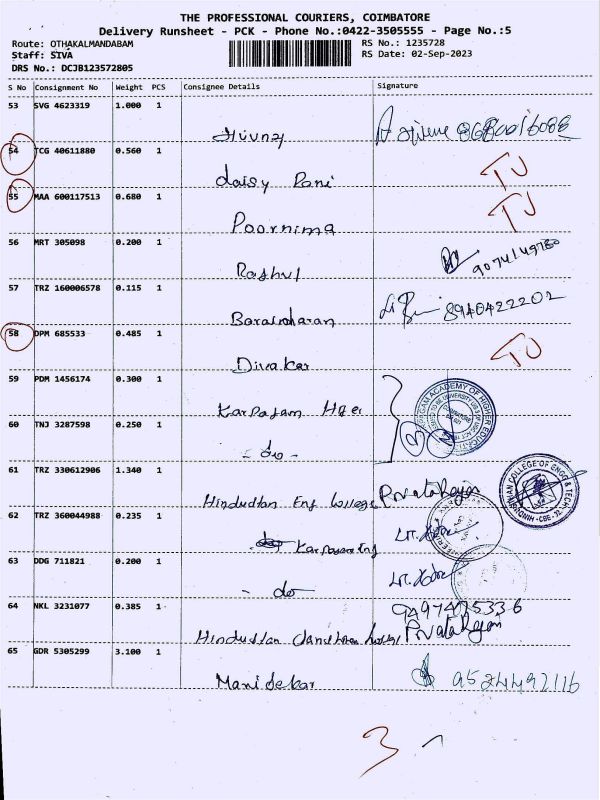 THE PROFESSIONAL COURIERS, COIMBATORE
Delivery Runsheet - PCK - Phone No.:0422-3505555 - Page No.:5
Route: OTHAKALMANDABAM
RS No.: 1235728
Staff: SIVA
RS Date: 02-Sep-2023
DRS No.: DCJB123572805
S No Consignment No Weight PCS Consignee Details Signature
53 SVG 4623319 1.000 1
54 TCG 40611880 0.560 1
daisy Rani TJ
55 MAA 600117513 0.680 1
Poornima TJ
56 MRT 305098 0.200 1
Rashul 9074149780
57 TRZ 160006578 0.115 1
8940422202
58 DPM 685533 0.485 1
Divakar TJ
59 PDM 1456174 0.300 1
Karpagam
60 TNJ 3287598 0.250 1
- do -
61 TRZ 330612906 1.340 1
Hindustan Eng College
62 TRZ 360044988 0.235 1
Karpagam Eng
63 DDG 711821 0.200 1
- do -
64 NKL 3231077 0.385 1
9497475336
Hindustan
65 GDR 5305299 3.100 1
Manisekar 9524492116
3